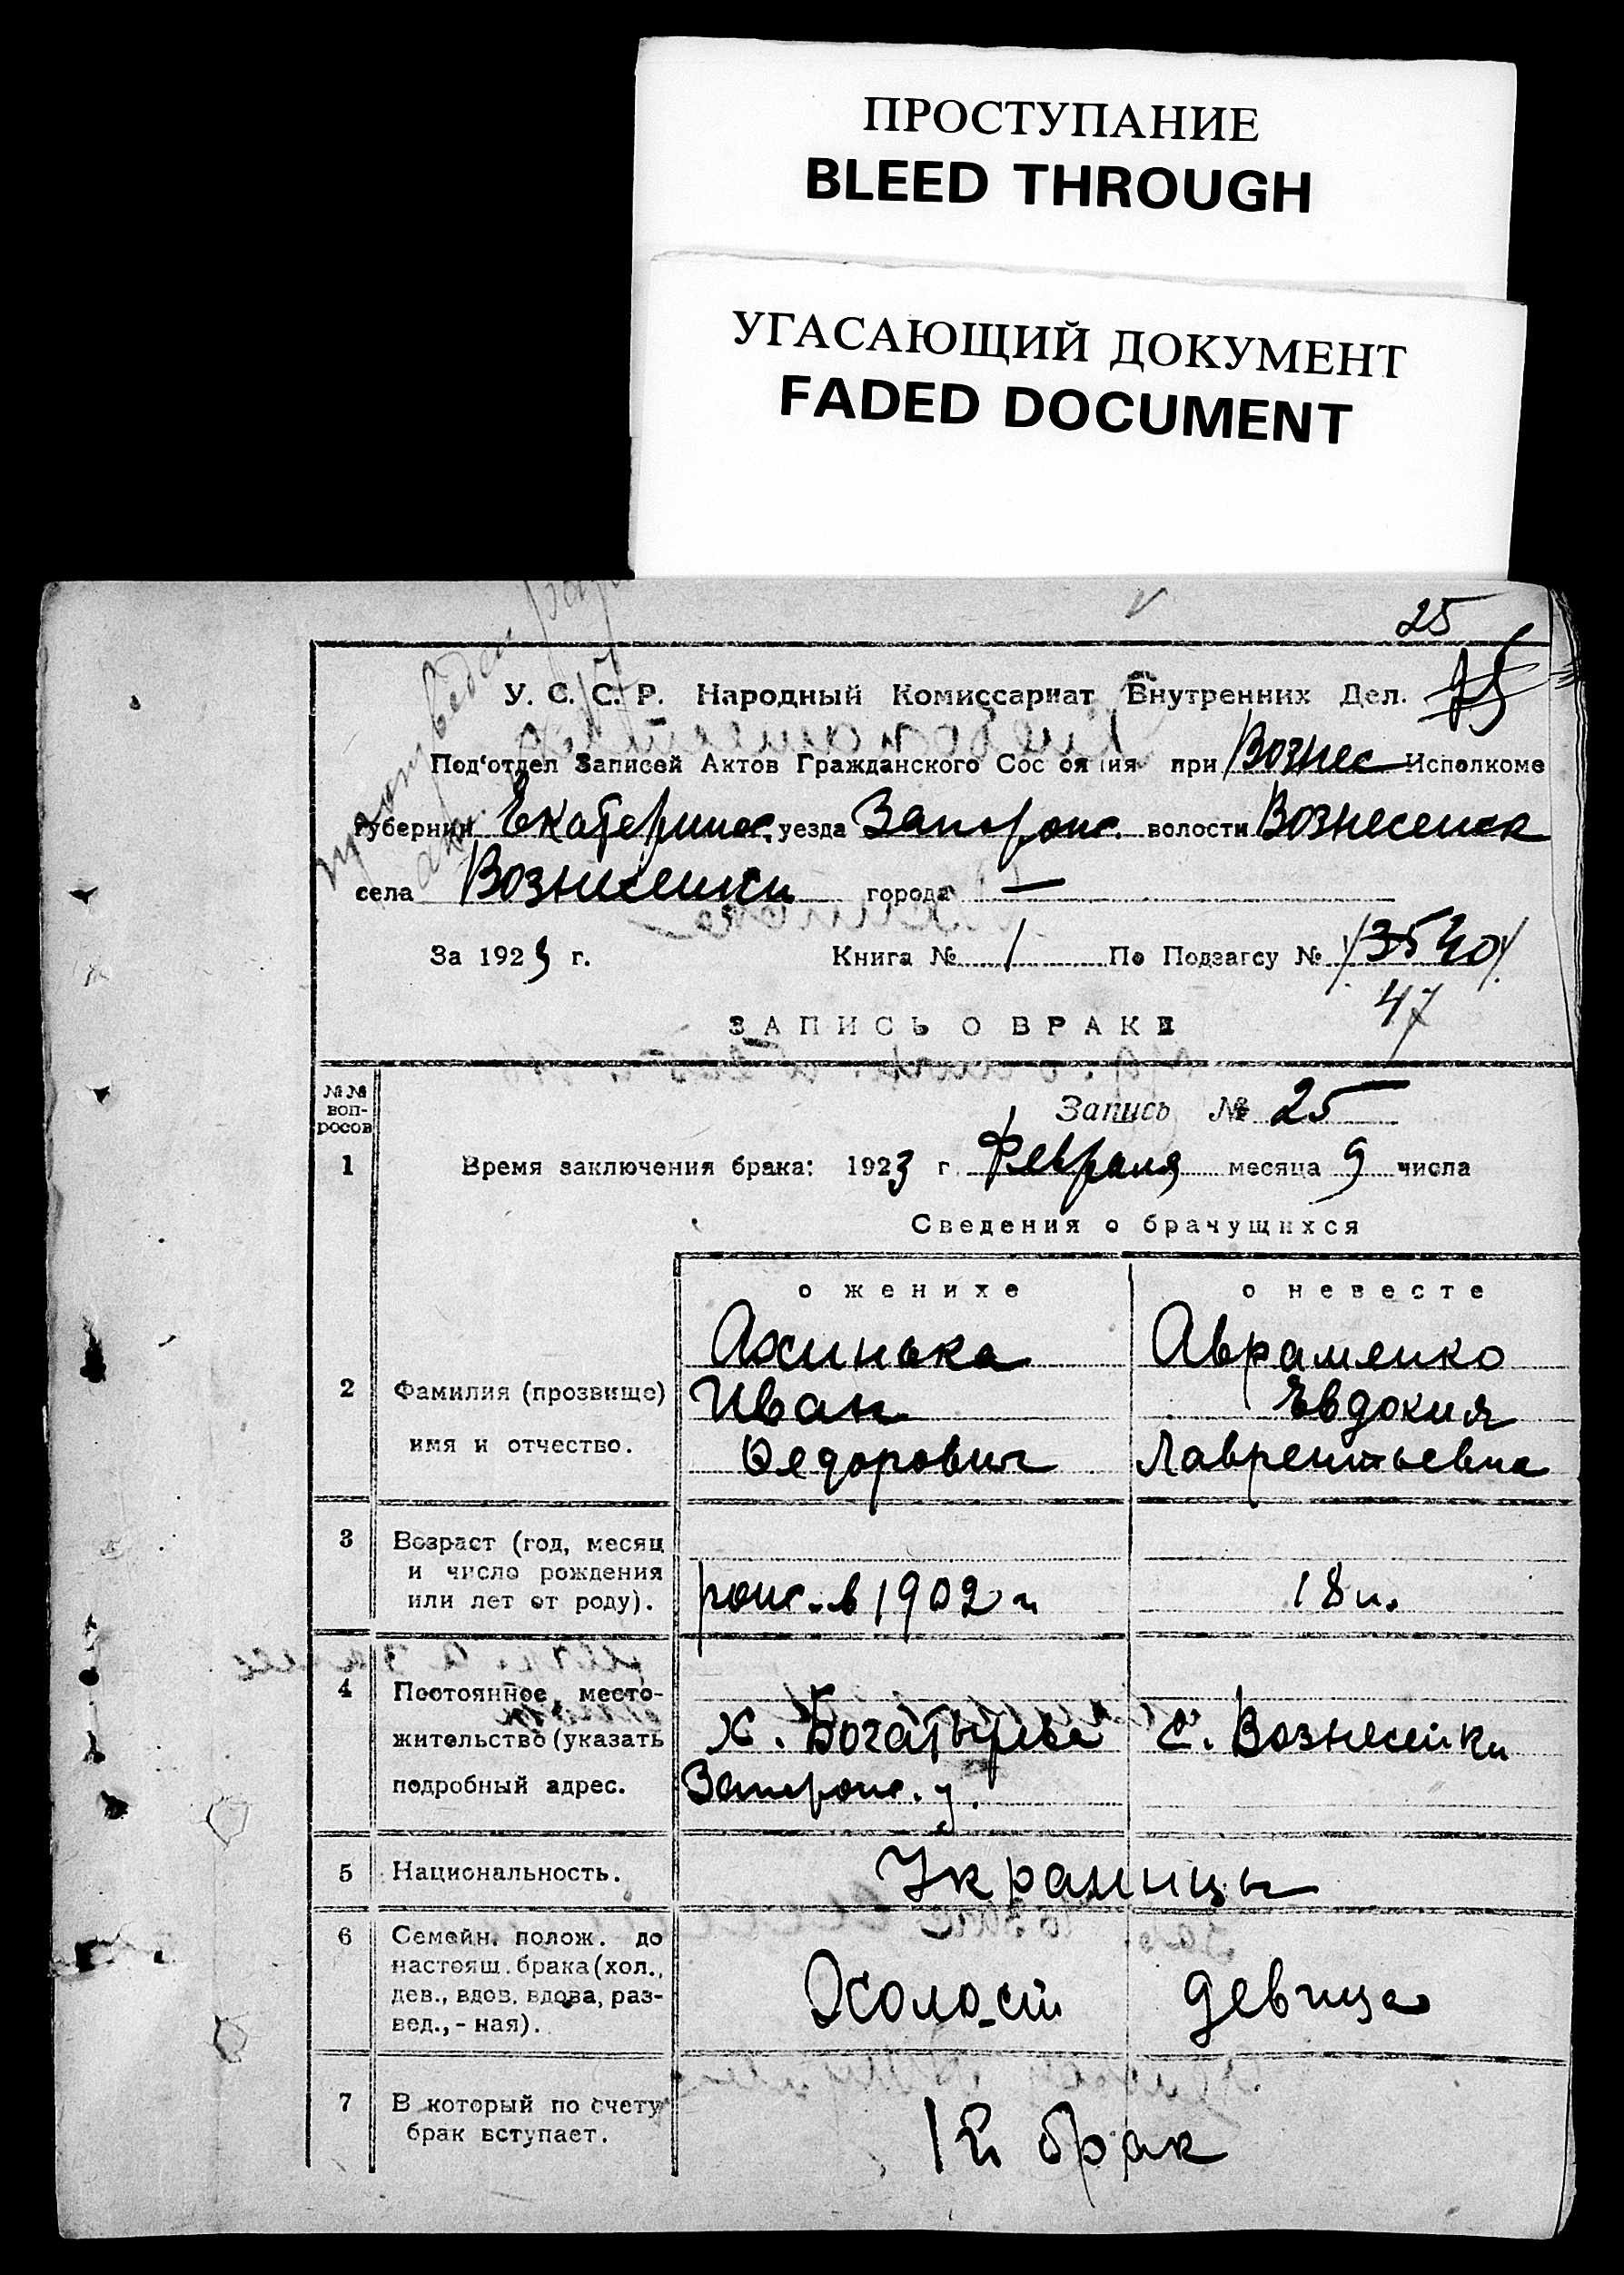 ПРОСТУПАНИЕ
BLEED THROUGH
УГАСАЮЩИЙ ДОКУМЕНТ
FADED DOCUMENT
25
У. С. С. Р. Народный Комиссариат Внутренних Дел. 75
Под‘отдел Записей Актов Гражданского Состояния при Вознес Исполкоме
Губернии Екатеринос. уезда Запорож. волости Вознесенск
села Вознесенки города —
За 1923 г. Книга № 1 По Подзагсу № 3540
47
ЗАПИСЬ О БРАКЕ
№№ воп-
росов
Запись № 25
1 Время заключения брака: 1923 г. Февраля месяца 9 числа
Сведения о брачущихся
о женихе о невесте
Авраменко
2 Фамилия (прозвище) Иван Евдокия
имя и отчество. Федорович Лаврентьевна
3 Возраст (год, месяц
и число рождения
или лет от роду). рож. в 1902 г. 18 л.
4 Постоянное место-
жительство (указать х. Богатырева с. Вознесенки
подробный адрес. Запорож. у.
5 Национальность. Украинцы
6 Семейн. полож. до
настоящ. брака (хол.,
дев., вдов. вдова, раз- Холост девица
вед., - ная).
7 В который по счету 1й брак
брак вступает.